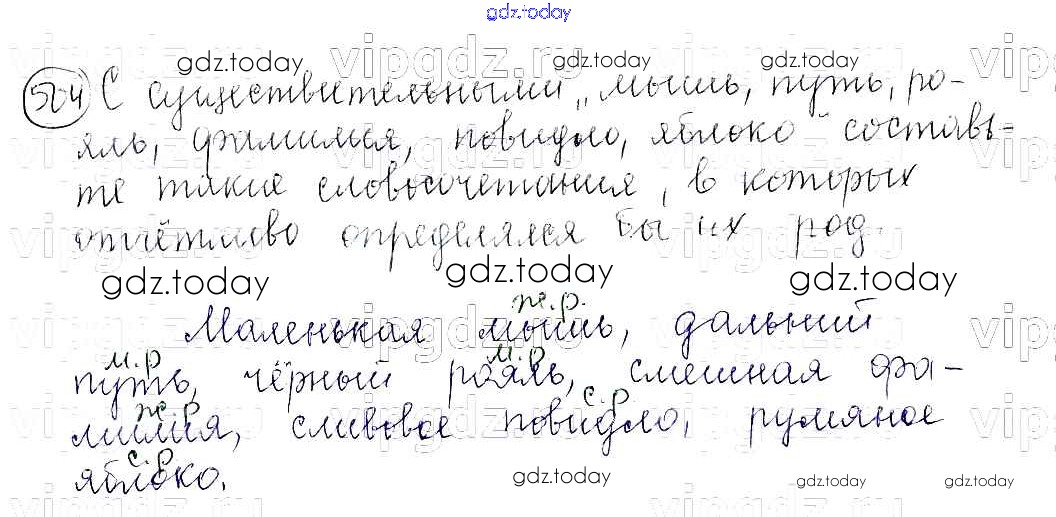 gdz.today
vipgdz.ru vipgdz.ru vipgdz.ru
gdz.today gdz.today gdz.today
504 С существительными „мышь, путь, ро-
яль, фамилия, повидло, яблоко" составь-
те такие словосочетания, в которых
отчётливо определялся бы их род.
gdz.today gdz.today gdz.today
ж.р.
Маленькая мышь, дальний
м.р м.р
путь, чёрный рояль, смешная фа-
ж.р с.р.
милия, сливовое повидло, румяное
с.р
яблоко.
gdz.today gdz.today gdz.today